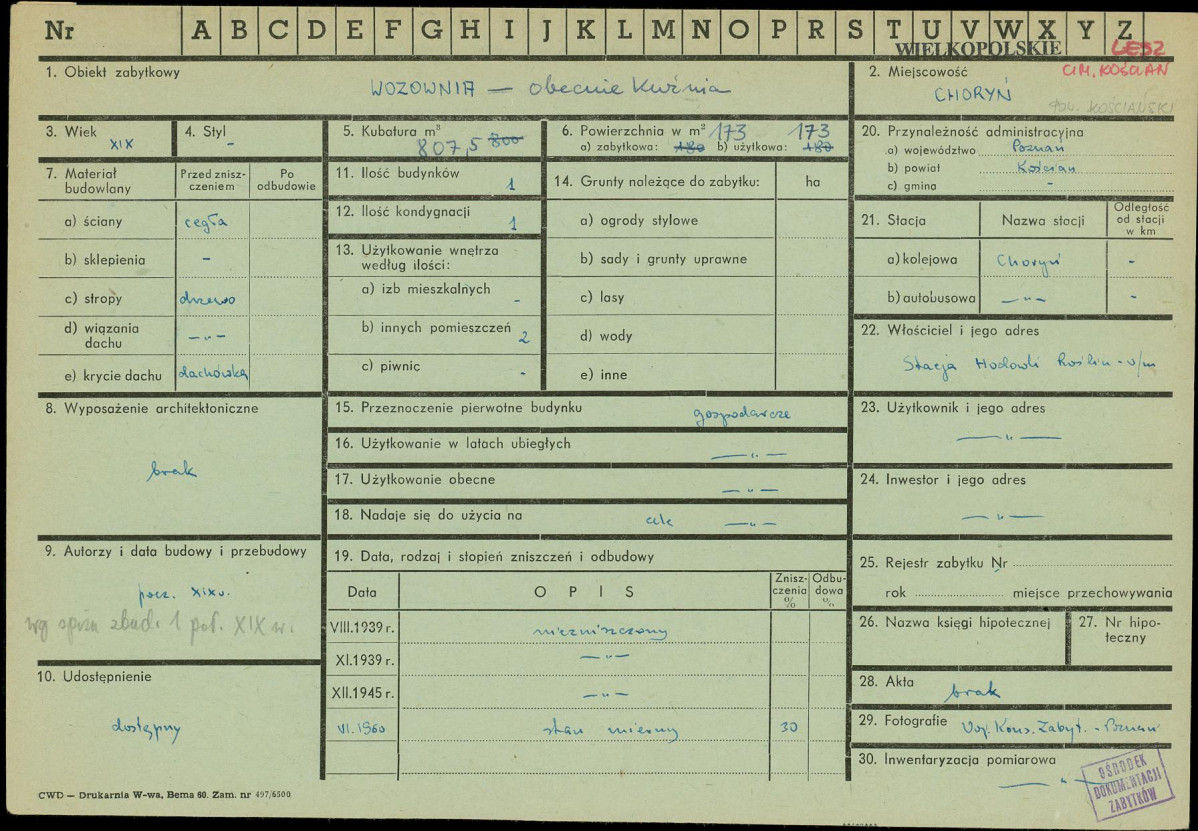 Nr A B C D E F G H I J K L M N O P R S T U V W X Y Z
WIELKOPOLSKIE LESZ
GM. KOŚCIAN
1. Obiekt zabytkowy
WOZOWNIA — obecnie Kuźnia
2. Miejscowość
CHORYŃ
pow. KOŚCIAŃSKI
3. Wiek
XIX
4. Styl
-
5. Kubatura m³
807,5 800
6. Powierzchnia w m² 173 173
a) zabytkowa: 180 b) użytkowa: 180
20. Przynależność administracyjna
a) województwo Poznań
b) powiat Kościan
c) gmina -
7. Materiał budowlany
Przed zniszczeniem
Po odbudowie
a) ściany cegła
b) sklepienia -
c) stropy drzewo
d) wiązania dachu —„—
e) krycie dachu dachówka
11. Ilość budynków 1
12. Ilość kondygnacji 1
13. Użytkowanie wnętrza
według ilości:
a) izb mieszkalnych -
b) innych pomieszczeń 2
c) piwnic -
14. Grunty należące do zabytku: ha
a) ogrody stylowe
b) sady i grunty uprawne
c) lasy
d) wody
e) inne
21. Stacja Nazwa stacji Odległość od stacji w km
a) kolejowa Choryń -
b) autobusowa —„— -
22. Właściciel i jego adres
Stacja Hodowli Roślin - w/m
8. Wyposażenie architektoniczne
brak
15. Przeznaczenie pierwotne budynku gospodarcze
16. Użytkowanie w latach ubiegłych —„—
17. Użytkowanie obecne —„—
18. Nadaje się do użycia na cele —„—
23. Użytkownik i jego adres
—„—
24. Inwestor i jego adres
—„—
9. Autorzy i data budowy i przebudowy
pocz. XIX w.
wg spisu zbud. 1 poł. XIX w.
19. Data, rodzaj i stopień zniszczeń i odbudowy
Data OPIS Zniszczenia % Odbudowa %
VIII.1939 r. niezniszczony
XI.1939 r. —„—
XII.1945 r. —„—
VI.1960 stan mierny 30
25. Rejestr zabytku Nr
rok miejsce przechowywania
26. Nazwa księgi hipotecznej
27. Nr hipoteczny
10. Udostępnienie
dostępny
28. Akta brak
29. Fotografie Woj. Kons. Zabyt. - Poznań
30. Inwentaryzacja pomiarowa
—„—
OŚRODEK
DOKUMENTACJI
ZABYTKÓW
CWD — Drukarnia W-wa, Bema 60. Zam. nr 497/6500